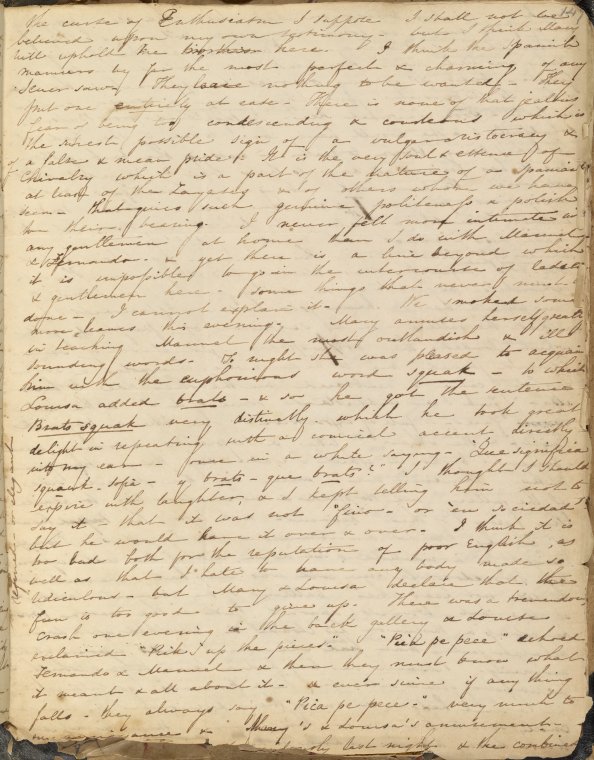 the curse of Enthusiasm I suppose I shall not be
believed upon my own testimony - but I think Mary
will uphold me here. I think the Spanish
manners by far the most perfect & charming of any
I ever saw. They have nothing to be wanted - They
put one entirely at ease - There is none of that jealous
fear of being too condescending & courteous which is
the surest possible sign of a vulgar aristocracy &
of a false & mean pride - It is the very soul & essence of
Chivalry which is a part of the nature of a Spaniard
at least of the Zayases & of others whom we have
seen - that gives such genuine politeness & polish
to their bearing. I never felt more intimate with
any gentlemen at home than I do with Manuel
& Fernando - & yet there is a line beyond which
it is impossible to go in the intercourse of ladies
& gentlemen here - some things that never must
done - I cannot explain it. We smoked some
leaves this evening. Mary amuses herself greatly
in teaching Manuel the most outlandish & ill
sounding words - To night she was pleased to acquaint
him with the euphonious word squak - to which
Louisa added brats - & so he got the sentence
Brats squak very distinctly which he took great
delight in repeating with a comical accent directly
into my ear - once in a while saying - "Que significa
squawk - Sofia - y brats - que brats?" I thought I should
expire with laughter, & I kept telling him not to
say it - that it was not "fino" - or "en sociedad"
but he would have it over & over - I think it is
too bad both for the reputation of poor English, as
well as that I hate to have any body made so
ridiculous - but Mary & Louisa declare that the
fun is too good to give up. There was a tremendous
crash one evening in the back gallery & Louisa
exclaimed "Pick up the pieces" - "Pica pe pece" echoed
Fernando & Manuel & then they must know what
it meant & all about it - & ever since if any thing
falls - they always say "Pica pe pece" - very much to
& Mary's & Louisa's amusement -
last night & the combined